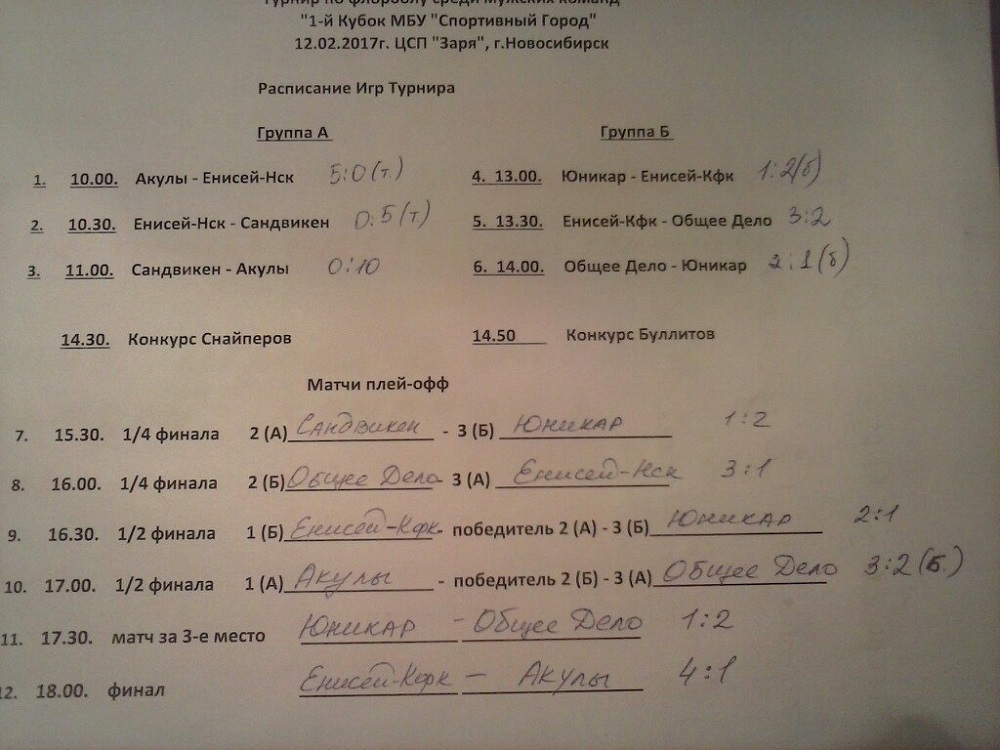 Турнир по флорболу среди мужских команд
"1-й Кубок МБУ "Спортивный Город"
12.02.2017г. ЦСП "Заря", г.Новосибирск
Расписание Игр Турнира
Группа А Группа Б
1. 10.00. Акулы - Енисей-Нск 5:0 (т.) 4. 13.00. Юникар - Енисей-Кфк 1:2(б)
2. 10.30. Енисей-Нск - Сандвикен 0:5 (т) 5. 13.30. Енисей-Кфк - Общее Дело 3:2
3. 11.00. Сандвикен - Акулы 0:10 6. 14.00. Общее Дело - Юникар 2:1(б)
14.30. Конкурс Снайперов 14.50 Конкурс Буллитов
Матчи плей-офф
7. 15.30. 1/4 финала 2 (А) Сандвикен - 3 (Б) Юникар 1:2
8. 16.00. 1/4 финала 2 (Б) Общее Дело - 3 (А) Енисей-Нск 3:1
9. 16.30. 1/2 финала 1 (Б) Енисей-Кфк - победитель 2 (А) - 3 (Б) Юникар 2:1
10. 17.00. 1/2 финала 1 (А) Акулы - победитель 2 (Б) - 3 (А) Общее Дело 3:2 (б.)
11. 17.30. матч за 3-е место Юникар - Общее Дело 1:2
12. 18.00. финал Енисей-Кфк - Акулы 4:1